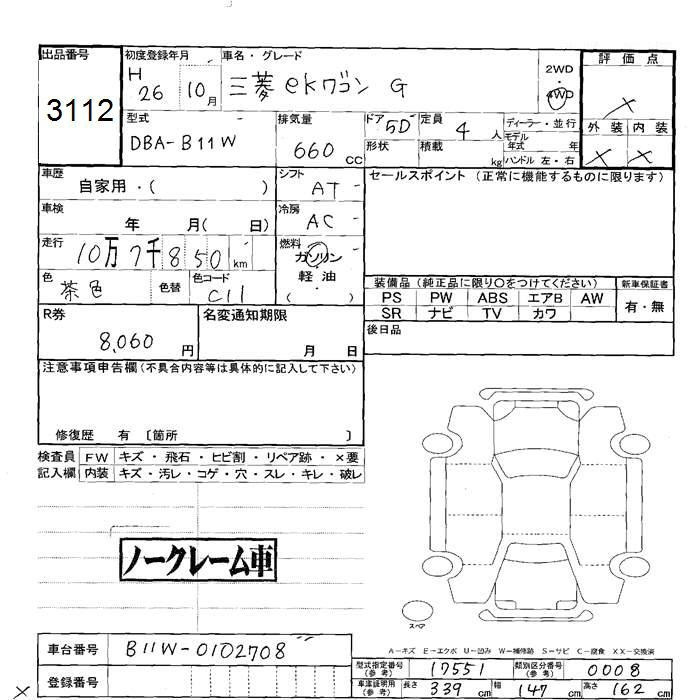 出品番号
3112
初度登録年月
H 26 10月
車名・グレード
三菱 eKワゴン G
2WD
・
4WD
評価点
×
外装 内装
× ×
型式
DBA-B11W
排気量
660 cc
ドア 5D
定員 4 人
ディーラー・並行
モデル
年式 年
形状
積載 kg
ハンドル 左・右
車歴
自家用・( )
シフト
AT
セールスポイント (正常に機能するものに限ります)
車検
年 月( 日)
冷房
AC
走行
10万7千850km
燃料
ガソリン
軽・油
( )
色
茶色
色替
色コード
C11
装備品 (純正品に限り○をつけてください)
新車保証書
PS PW ABS エアB AW
SR ナビ TV カワ
有・無
R券
8,060 円
名変通知期限
月 日
後日品
注意事項申告欄 (不具合内容等は具体的に記入して下さい)
修復歴 有 〔箇所 〕
検査員 FW キズ・飛石・ヒビ割・リペア跡・×要
記入欄 内装 キズ・汚レ・コゲ・穴・スレ・キレ・破レ
ノークレーム車
スペア
A-キズ E-エクボ U-凹み W-補修跡 S-サビ C-腐食 XX-交換済
車台番号
B11W-0102708
登録番号
型式指定番号
(参考)
17551
類別区分番号
(参考)
0008
車庫証明用
(参考)
長さ 339cm 幅 147cm 高さ 162cm
×